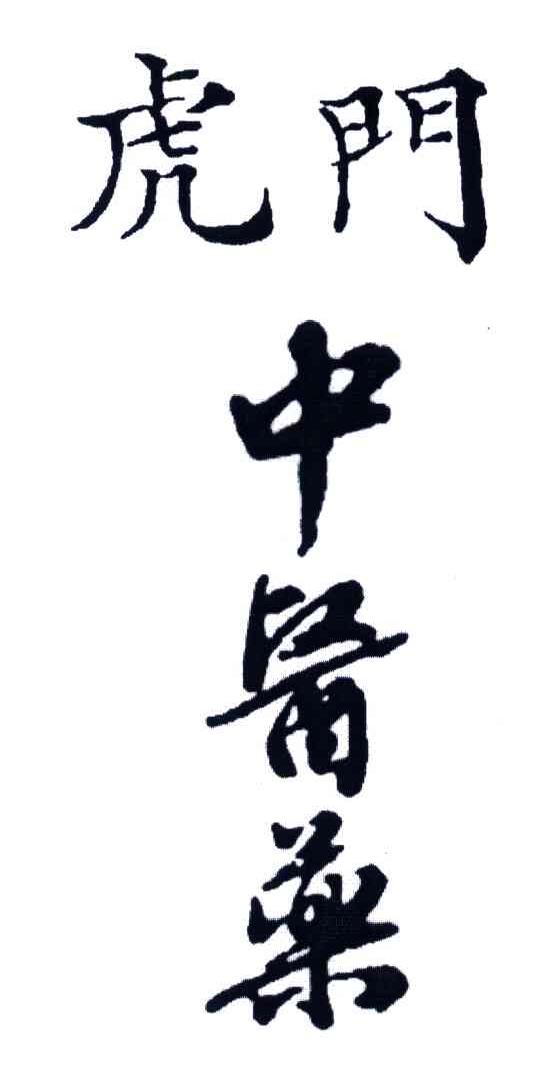 虎門
中
醫
藥